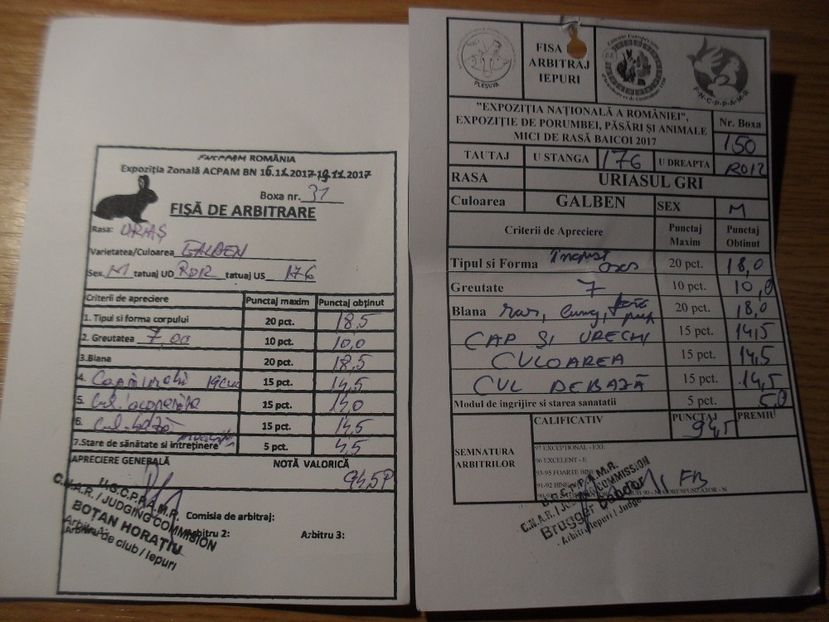 ROMÂNIA
Expoziția Zonală ACPAM BN 15.11.2017-19.11.2017
Boxa nr. 31
FIȘĂ DE ARBITRARE
Rasa: URIAȘ
Varietatea/Culoarea GALBEN
Sex. M tatuaj UD RO12 tatuaj US 176
Criterii de apreciere Punctaj maxim Punctaj obținut
1. Tipul si forma corpului 20 pct. 18.5
2. Greutatea 7,00 10 pct. 10,0
3.Blana 20 pct. 18.5
4. 15 pct. 14,5
5. Cul. acoperire 15 pct. 14,0
6. Cul. bază 15 pct. 14,5
7.Stare de sănătate si întreținere 5 pct. 4,5
APRECIERE GENERALĂ NOTĂ VALORICĂ
94,5P
U.G.C.P.R.A.M.R.
C.N.A.R. / JUDGING COMMISION
BOTAN HORAȚIU
Arbitru de club / Iepuri
Comisia de arbitraj:
Arbitru 2: Arbitru 3:
PLEȘUVA
FISA
ARBITRAJ
IEPURI
F.N.C.P.P.A.M.R
"EXPOZIȚIA NAȚIONALĂ A ROMÂNIEI",
EXPOZIȚIE DE PORUMBEI, PĂSĂRI ȘI ANIMALE
MICI DE RASĂ BAICOI 2017
Nr. Boxa
150
TAUTAJ U STANGA 176 U DREAPTA RO12
RASA URIASUL GRI
Culoarea GALBEN SEX M
Criterii de Apreciere Punctaj Maxim Punctaj Obținut
Tipul si Forma 20 pct. 18,0
Greutate 7 10 pct. 10,0
Blana 20 pct. 18,0
CAP ȘI URECHI 15 pct. 14,5
CULOAREA 15 pct. 14,5
CUL DE BAZĂ 15 pct. 14,5
Modul de ingrijire si starea sanatatii 5 pct. 5,0
SEMNATURA ARBITRILOR
CALIFICATIV PUNCTAJ PREMIU
94,5
97 EXCEPTIONAL - EXE
96 EXCELENT - E
93-95 FOARTE
FB
U.G.C.P.R.A.M.R.
C.N.A.R. / JUDGING COMMISSION
Brugger Gabor
Arbitru Iepuri / Judge